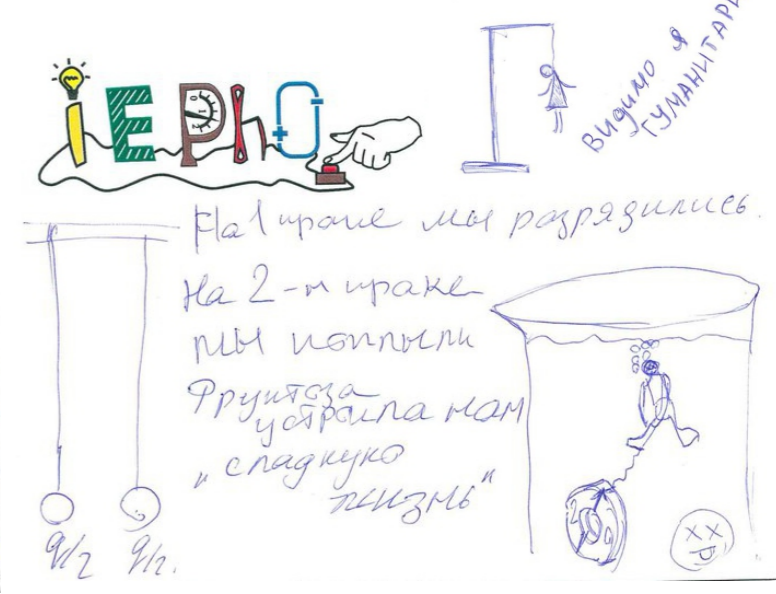 ІЕРhO
Видимо я
ГУМАНИТАРИ
На 1 праке мы разрядились.
На 2-м праке
мы поплыли
Фруктоза
устроила нам
"сладкую
жизнь"
q/2 q/2.